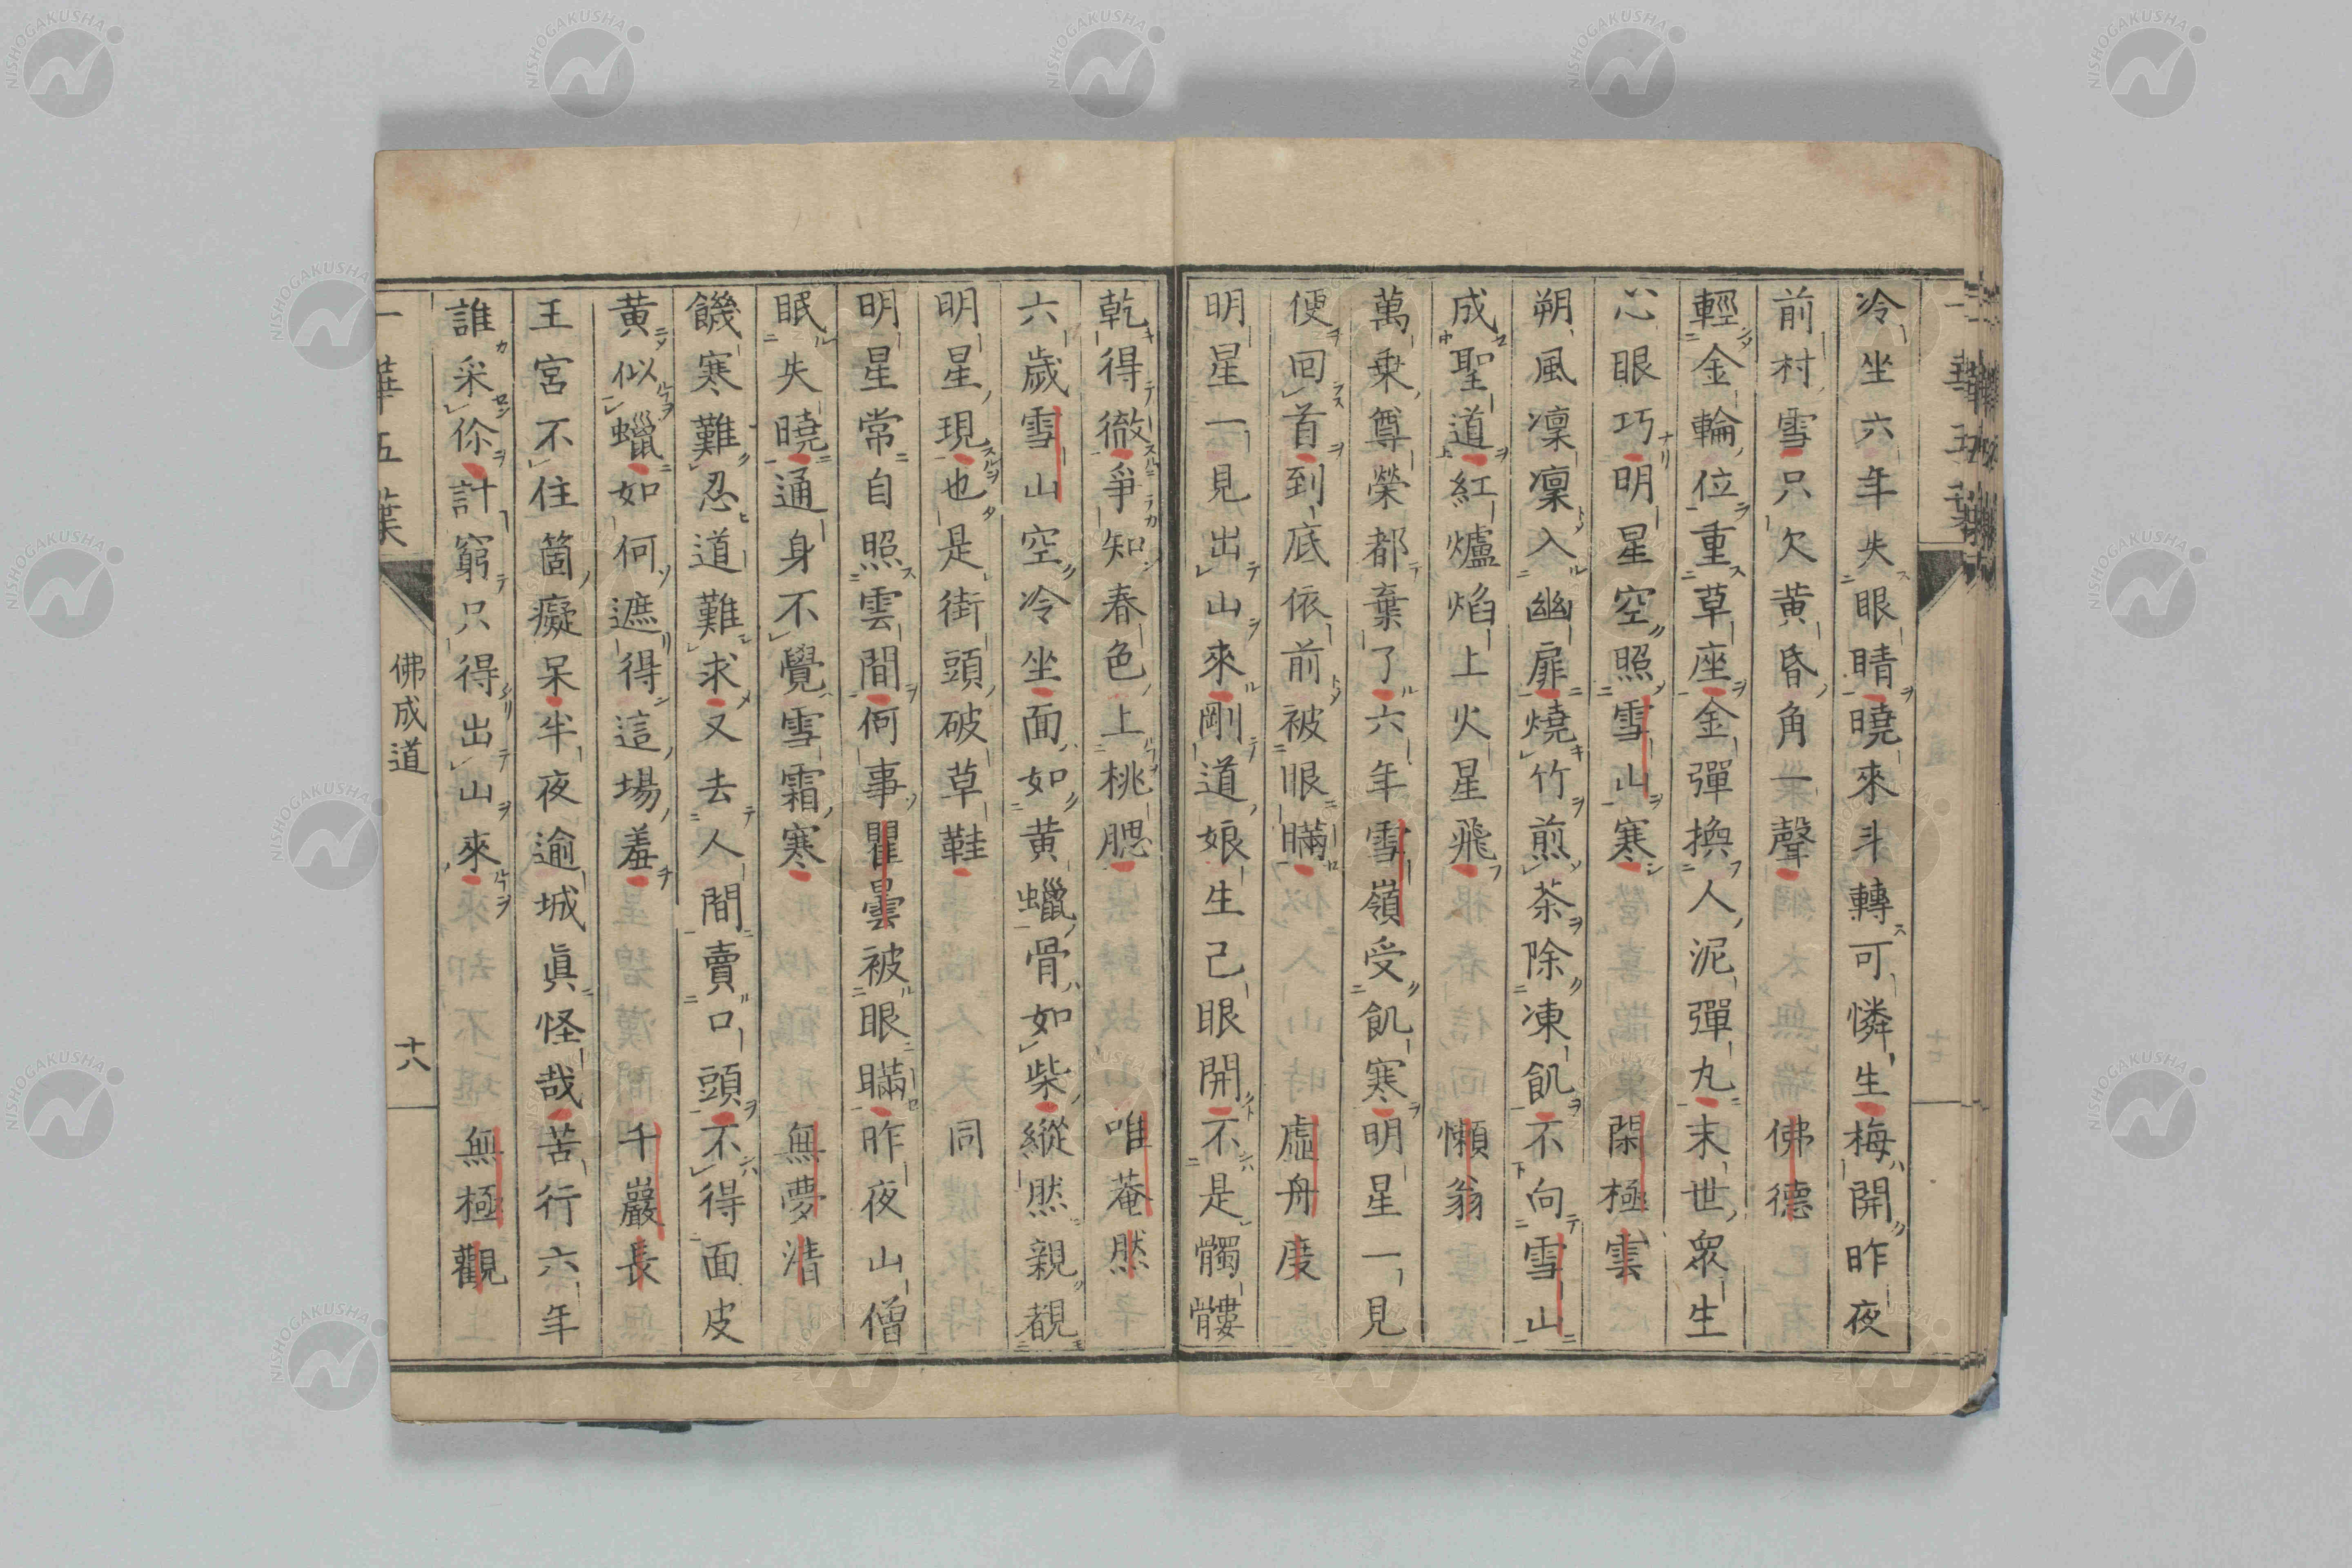 冷坐六年失眼睛曉來斗轉可憐生梅開昨夜
前村雪只欠黄昏角一聲 佛德
輕金輪位重草座金彈換人泥彈丸末世衆生
心眼巧明星空照雪山寒 閑極雲
朔風凜凜入幽扉燒竹煎茶除凍飢不向雪山
成聖道紅爐焰上火星飛 懶翁
萬乗尊榮都棄了六年雪嶺受飢寒明星一見
便回首到底依前被眼瞞 虛舟度
明星一見出山來剛道娘生己眼開不是髑髏
乾得徹爭知春色上桃腮 唯菴然
六歲雪山空冷坐面如黄蠟骨如柴縱然親覩
明星現也是街頭破草鞋 同
明星常自照雲間何事瞿曇被眼瞞昨夜山僧
眠失曉通身不覺雪霜寒 無夢清
饑寒難忍道難求又去人間賣口頭不得面皮
黄似蠟如何遮得這場羞 千巖長
王宮不住箇癡呆半夜逾城眞怪哉苦行六年
誰采你計窮只得出山來 無極觀
一華五葉 佛成道 十八